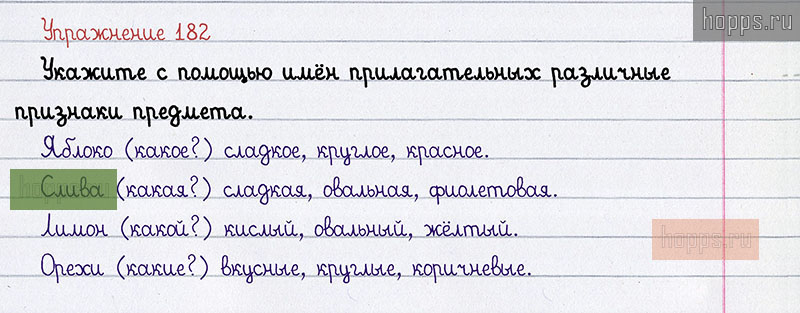 hopps.ru
Упражнение 182
Укажите с помощью имён прилагательных различные
признаки предмета.
Яблоко (какое?) сладкое, круглое, красное.
Слива (какая?) сладкая, овальная, фиолетовая.
Лимон (какой?) кислый, овальный, жёлтый.
hopps.ru
Орехи (какие?) вкусные, круглые, коричневые.